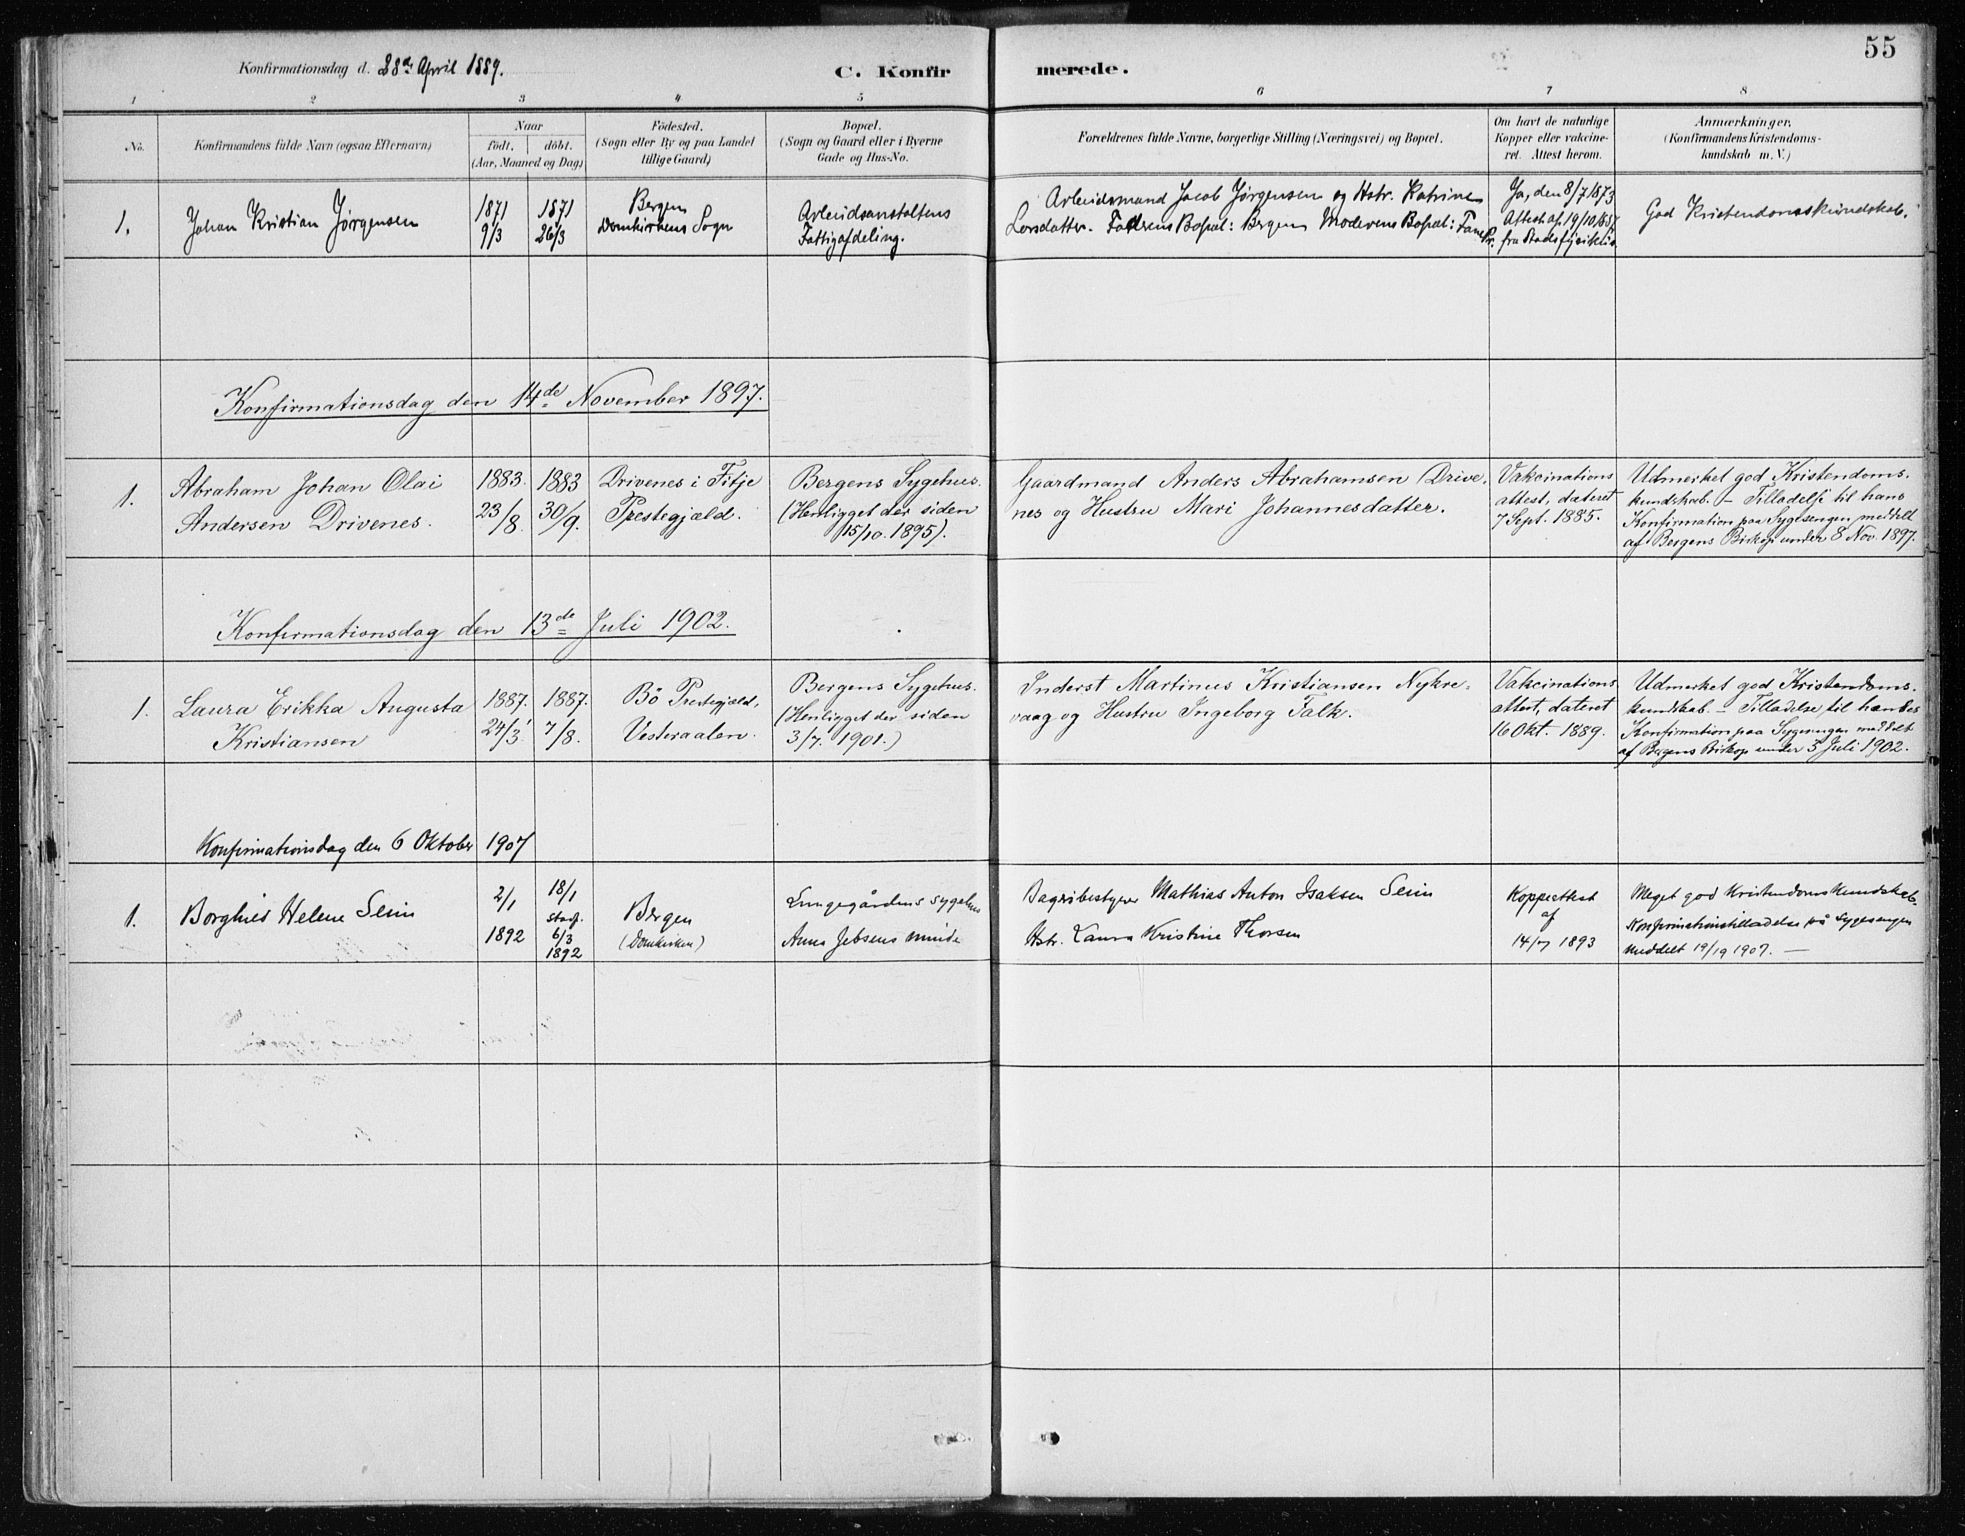 55
Konfirmationsdag d. 28de April 1889.
C. Konfir
merede.
1 2 3 4 5 6 7 8
No.
Konfirmandens fulde Navn (ogsaa Efternavn)
Naar
födt. döbt.
(Aar, Maaned og Dag)
Födested.
(Sogn eller By og paa Landet
tillige Gaard)
Bopæl.
(Sogn og Gaard eller i Byerne
Gade og Hus-No.
Forældrenes fulde Navne, borgerlige Stilling (Næringsvei) og Bopæl.
Om havt de naturlige
Kopper eller vakcine-
ret. Attest herom.
Anmærkninger.
(Konfirmandens Kristendoms-
kundskab m. V.)
1.
Johan Kristian Jørgensen
1871
9/3
1871
26/3
Bergen
Domkirkens Sogn
Arbeidsanstaltens
Fattigafdeling.
Arbeidsmand Jacob Jørgensen og Hstr. Katrine
Larsdatter. Faderens Bopæl: Bergen Moderens Bopæl: Fane Pr.
Ja, den 8/7 1873
Attest af 19/10 1887
fra Stadsfysikus
God Kristendomskundskab.
Konfirmationsdag den 14de November 1897.
1.
Abraham Johan Olai
Andersen Drivenes.
1883.
23/8.
1883
30/9.
Drivenes i Fitje
Prestegjæld.
Bergens Sygehus.
(Henligget der siden
15/10. 1895).
Gaardmand Anders Abrahamsen Drive-
nes og Hustru Mari Johannesdatter.
Vakcinations
attest, dateret
7 Sept. 1885.
Udmerket god Kristendoms-
kundskab. – Tilladelse til hans
Konfirmation paa Sygesengen meddelt
af Bergens Biskop under 8 Nov. 1897.
Konfirmationsdag den 13de Juli 1902.
1.
Laura Erikka Augusta
Kristiansen
1887.
24/3.
1887.
7/8.
Bö Prestegjæld,
Vesteraalen.
Bergens Sygehus.
(Henligget der siden
3/7. 1901.)
Inderst Martinus Kristiansen Nykre-
vaag og Hustru Ingeborg Falk.
Vakcinations
attest, dateret
16 Okt. 1889.
Udmerket god Kristendoms-
kundskab. – Tilladelse til hendes
Konfirmation paa Sygesengen meddelt
af Bergens Biskop under 5 Juli 1902.
Konfirmationsdag den 6 Oktober 1907
1.
Borghild Helene Seim
2/1
1892
18/1
stadf.
6/3
1892
Bergen
(Domkirken)
Lungegårdens sygehus
Anna Jebsens minde
Bagribestyrer Mathias Anton Isaksen Seim
Hstr. Laura Kristine Thorsen
Koppeattest
af
14/7 1893
Meget god Kristendomskundskab.
Konfirmationstilladelse på Sygesengen
meddelt 1907. —